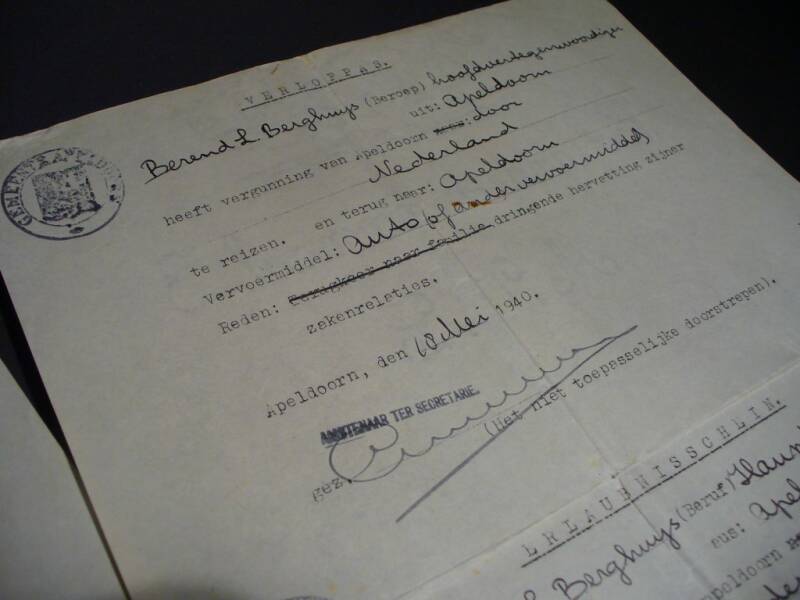 VERLOFPAS.
Berend L Berghuys (Beroep) hoofdvertegenwoordiger
uit: Apeldoorn
heeft vergunning van Apeldoorn naar: door
Nederland
te reizen. en terug naar: Apeldoorn
Vervoermiddel: Auto (of ander vervoermiddel
Reden: Terugkeer naar familie dringende hervetting zijner
zakenrelaties.
Apeldoorn, den 18 Mei 1940.
AMBTENAAR TER SECRETARIE.
gez.
(Het niet toepasselijke doorstrepen).
ERLAUBNISSCHEIN.
L Berghuys (Beruf) Haupt
aus: Apel
peldoorn
GEMEENTE